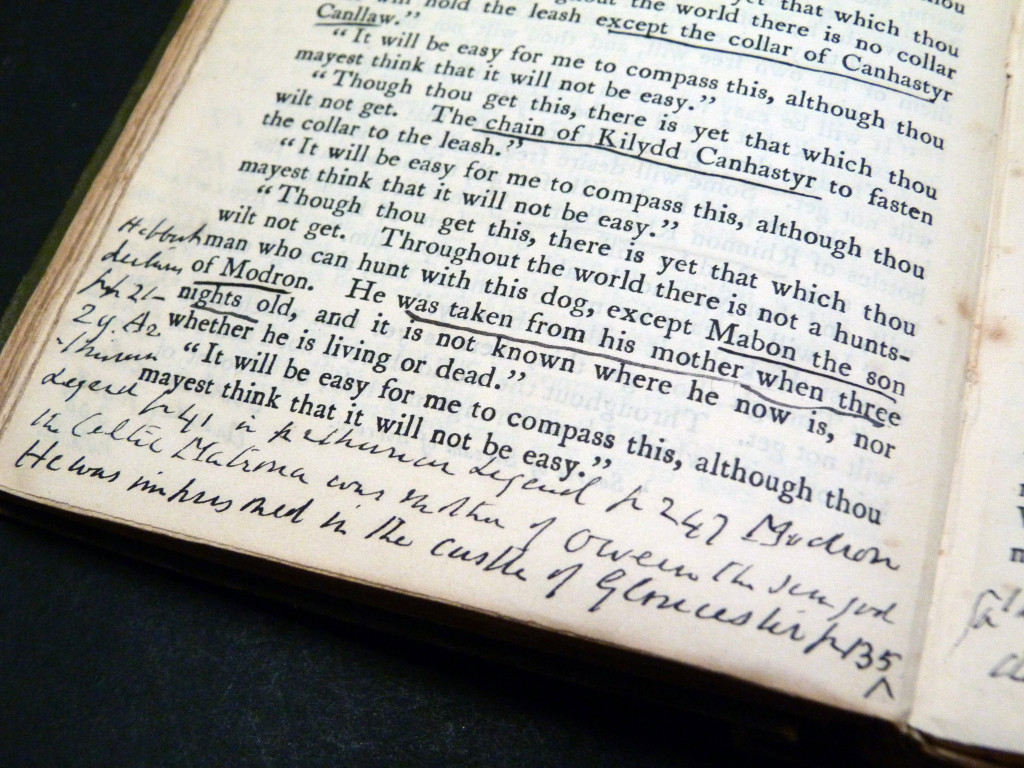 that which thou
hold the leash except the collar of Canhastyr
the world there is no collar
Canllaw."
"It will be easy for me to compass this, although thou
mayest think that it will not be easy."
"Though thou get this, there is yet that which thou
wilt not get. The chain of Kilydd Canhastyr to fasten
the collar to the leash."
"It will be easy for me to compass this, although thou
mayest think that it will not be easy."
"Though thou get this, there is yet that which thou
wilt not get. Throughout the world there is not a hunts-
man who can hunt with this dog, except Mabon the son
of Modron. He was taken from his mother when three
nights old, and it is not known where he now is, nor
whether he is living or dead."
"It will be easy for me to compass this, although thou
mayest think that it will not be easy."
Hibbert
lectures
of
Arthurian
Legend p 241 in Arthurian Legend p 247 Modron
the Celtic Matrona was mother of Owein the sun god
He was imprisoned in the castle of Gloucester p 135